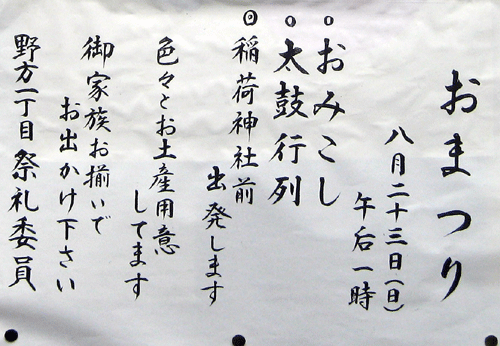 おまつり
八月二十三日(日)
午后一時
◦おみこし
◦太鼓行列
◎稲荷神社前
出発します
色々とお土産用意
してます
御家族お揃いで
お出かけ下さい
野方一丁目祭礼委員